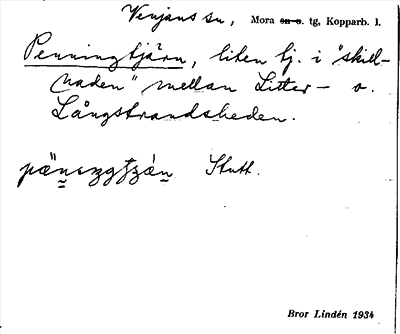 Venjans sn, Mora sn o. tg, Kopparb. l.
Penningtjärn, liten tj. i "skill-
naden" mellan Litter- o.
Långstrandsheden.
Stutt.
Bror Lindén 1934